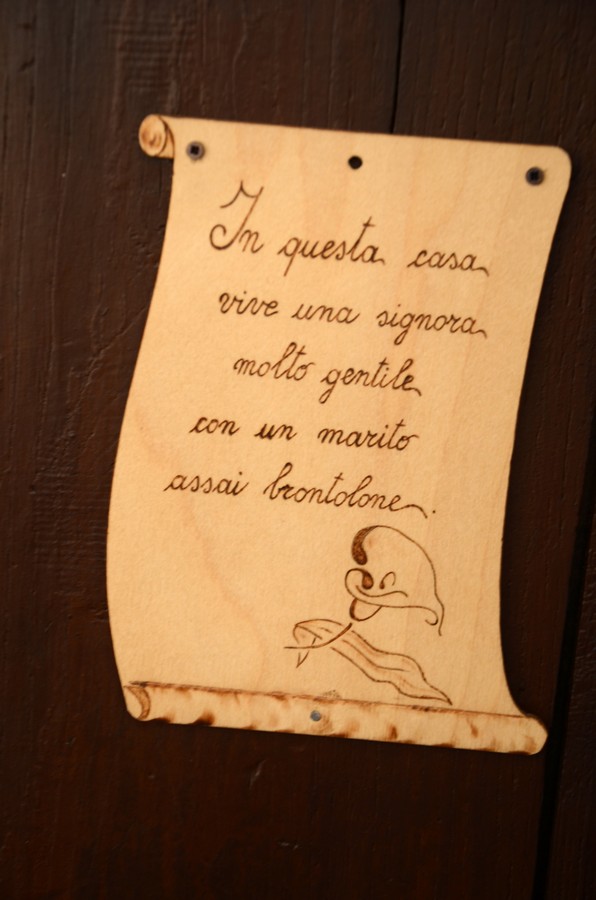 In questa casa
vive una signora
molto gentile
con un marito
assai brontolone.